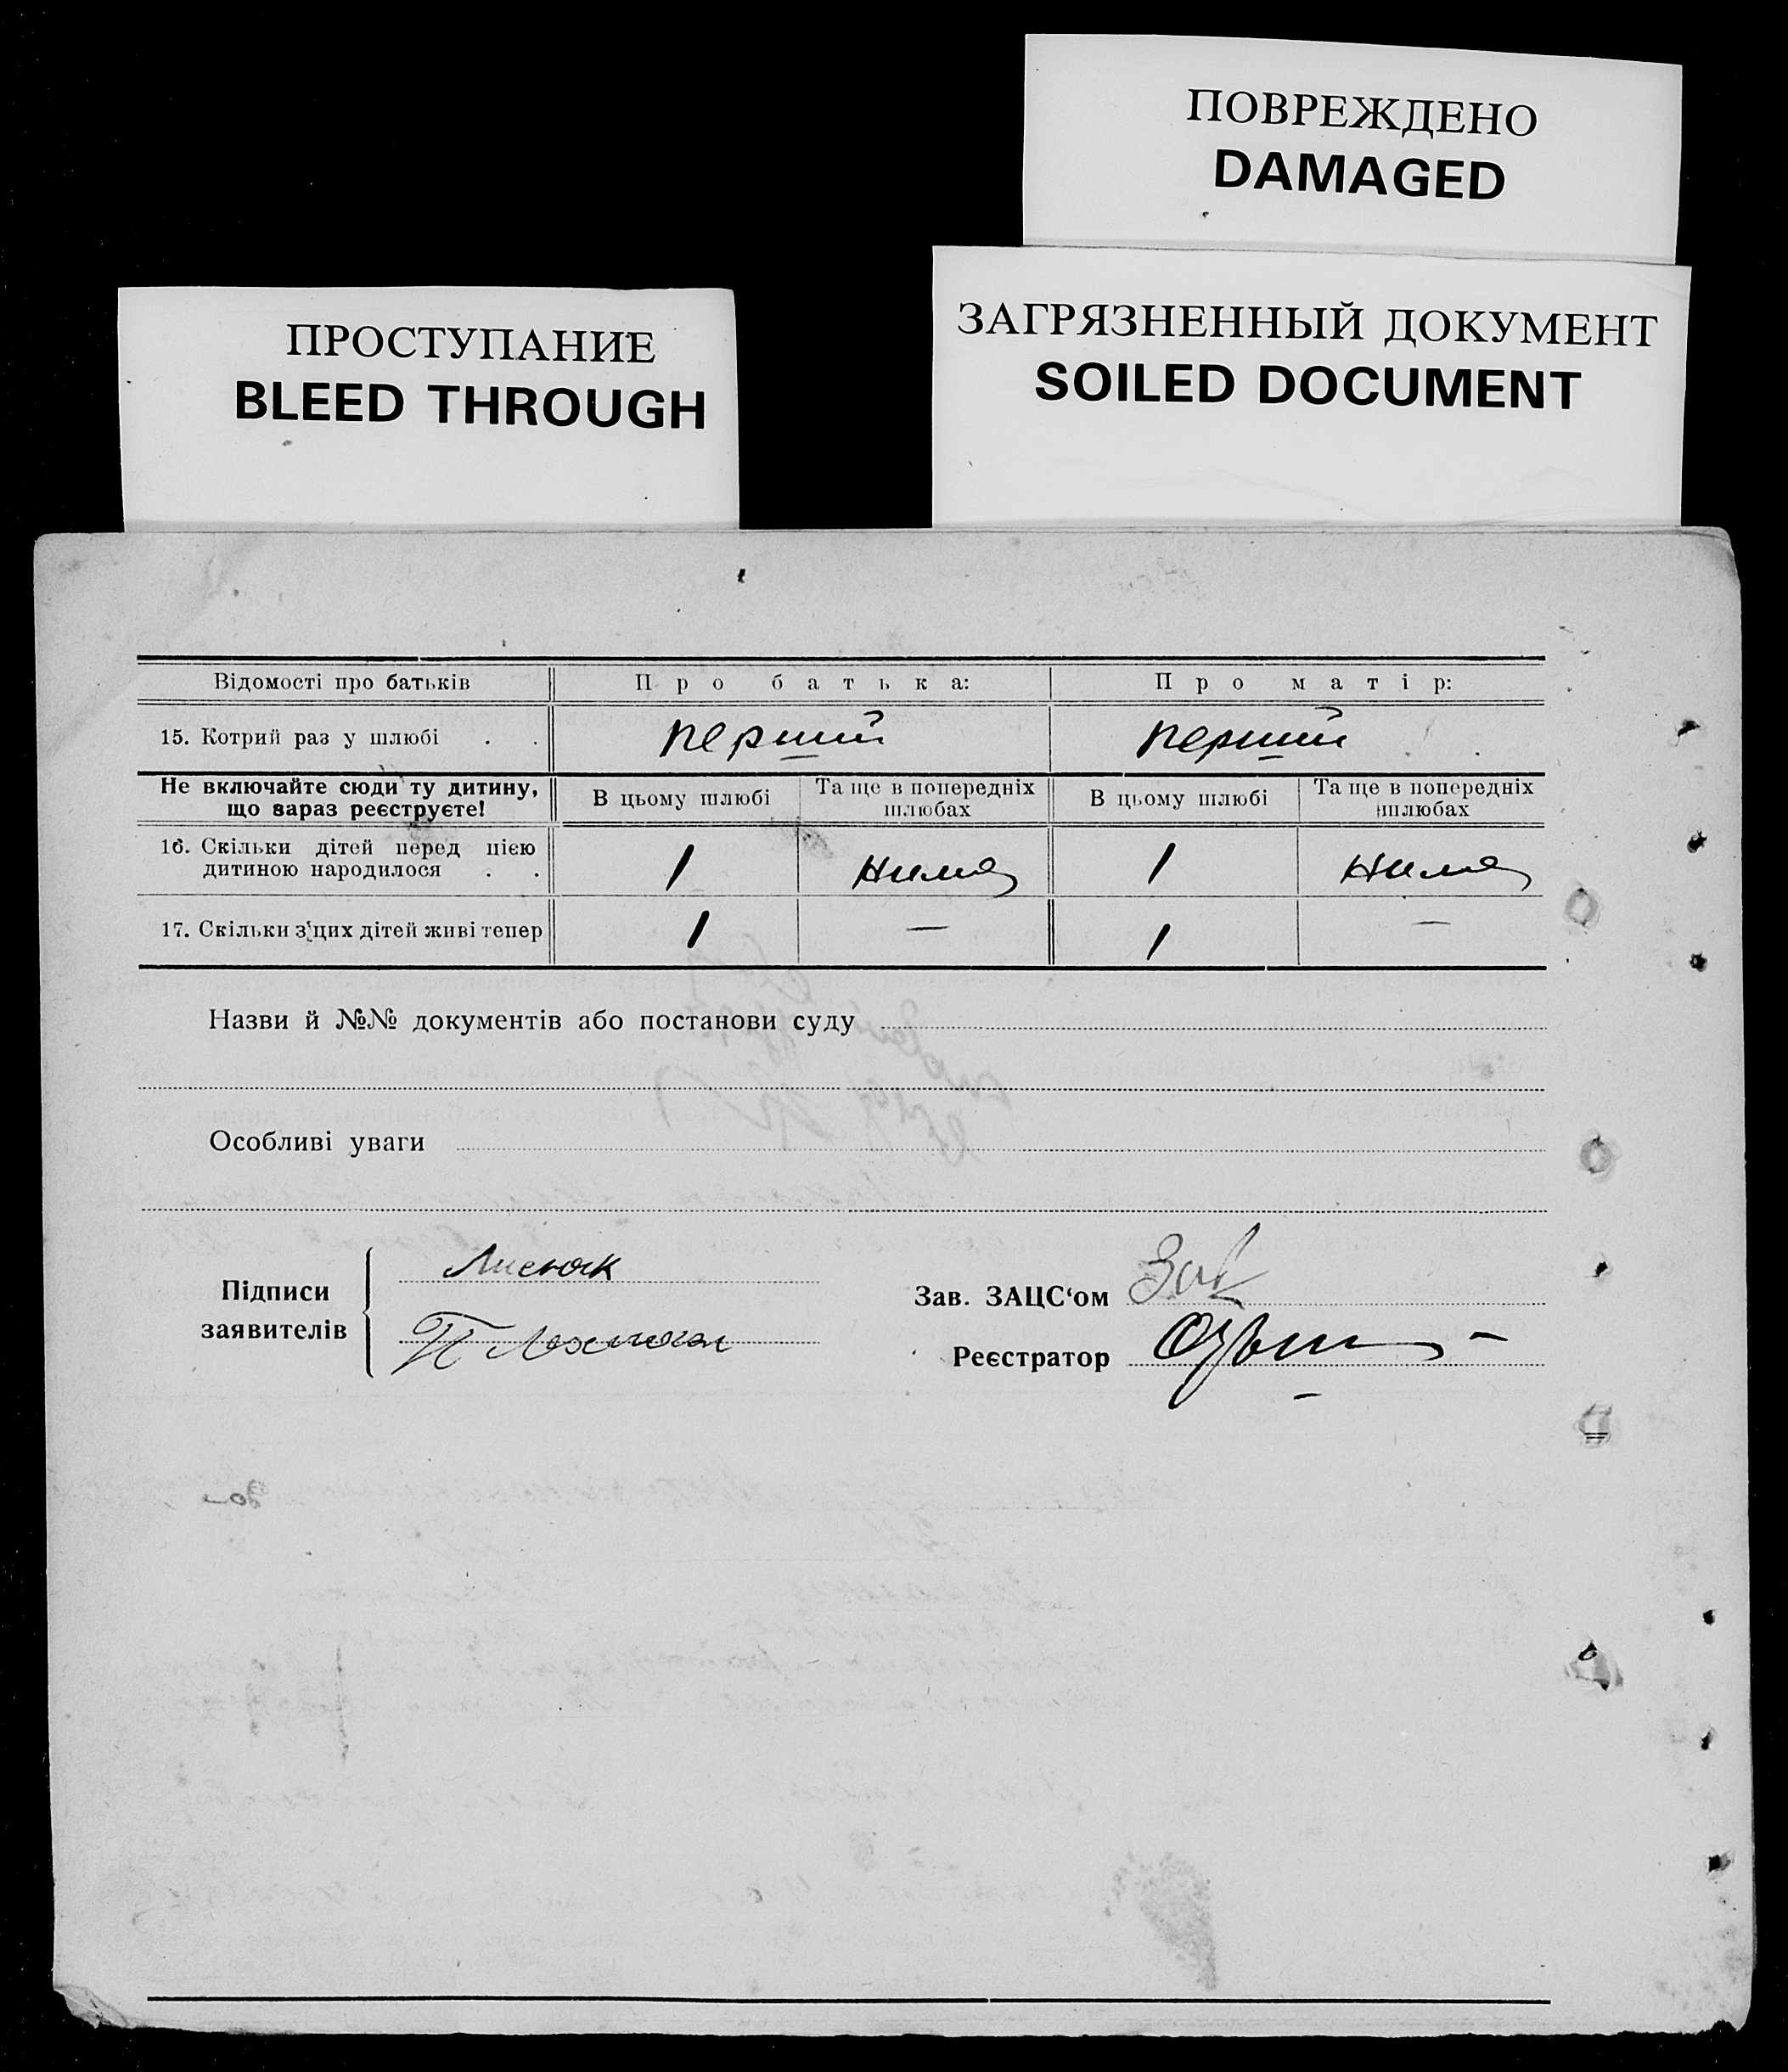 ПОВРЕЖДЕНО
DAMAGED
ПРОСТУПАНИЕ
BLEED THROUGH
ЗАГРЯЗНЕННЫЙ ДОКУМЕНТ
SOILED DOCUMENT
Відомості про батьків Про батька: Про матір:
15. Котрий раз у шлюбі . . перший перший
Не включайте сюди ту дитину,
що зараз реєструєте!
В цьому шлюбі
Та ще в попередніх
шлюбах
В цьому шлюбі
Та ще в попередніх
шлюбах
16. Скільки дітей перед цією
дитиною народилося . . 1 нима 1 нима
17. Скільки з цих дітей живі тепер 1 — 1 —
Назви й №№ документів або постанови суду
Особливі уваги
Підписи
заявителів
Лисюк
Зав. ЗАЦС‘ом
Реєстратор